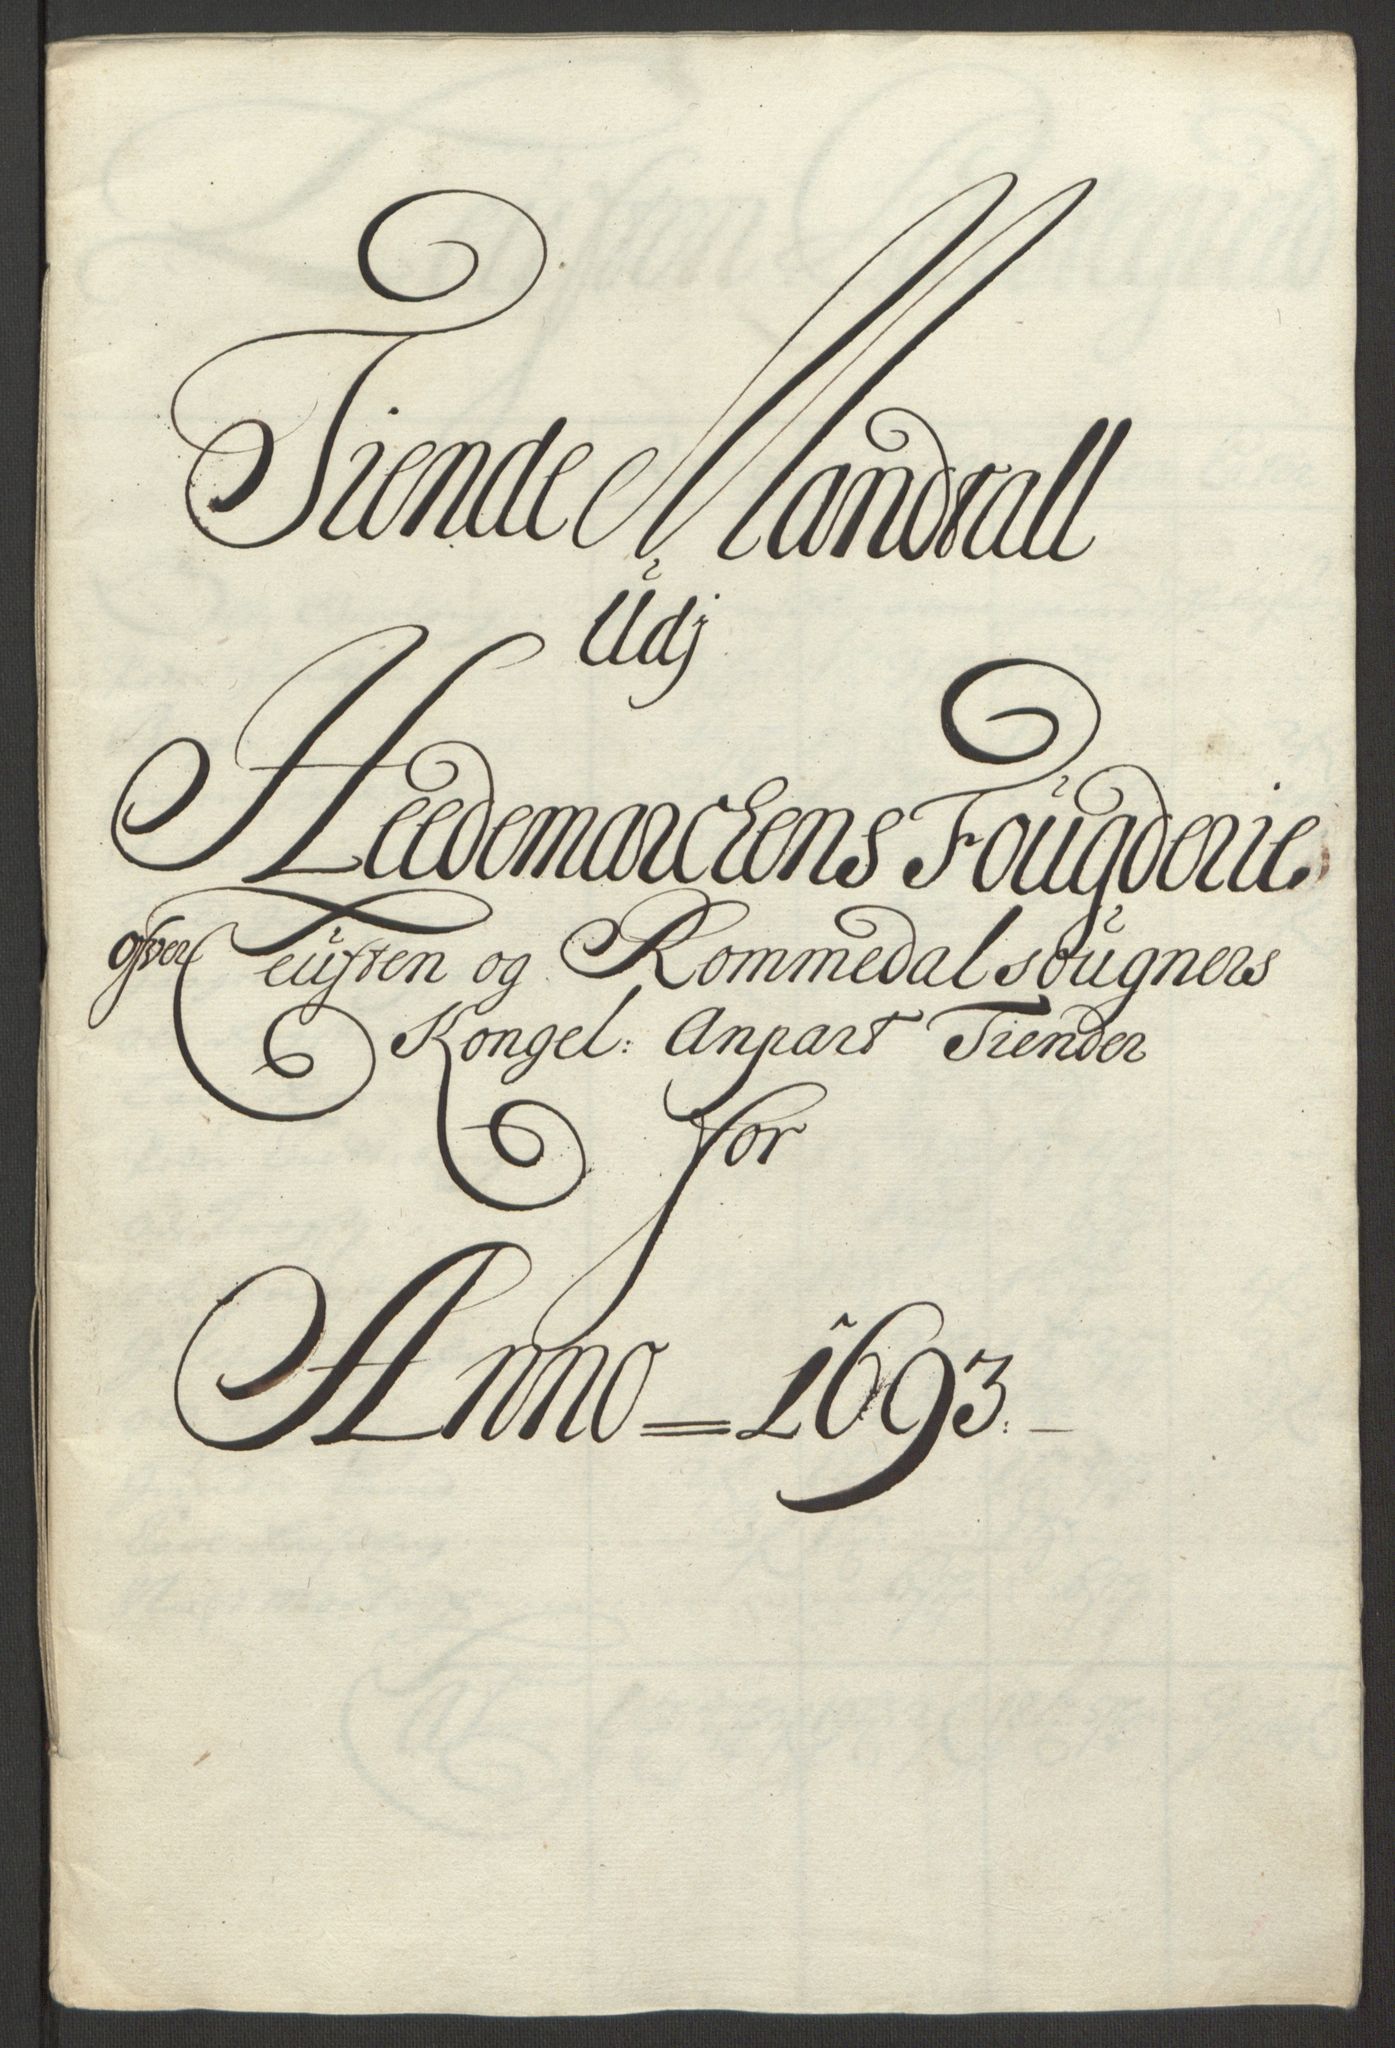 Tiende Mandtall
Udj
Heedemarckens Fougderie
ofver Leuften og Rommedal sougners
Kongel: Anpart Tiender
for
Anno = 1693.